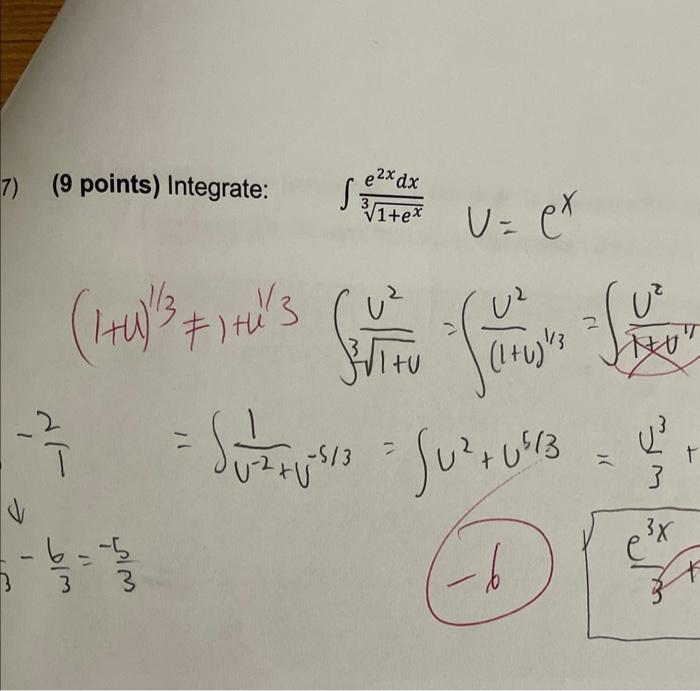 7) (9 points) Integrate: ∫ e^{2x}dx / ∛(1+e^x) U = e^x
(1+u)^{1/3} ≠ 1+u^{1/3} ∫ U^2 / ∛(1+U) = ∫ U^2 / (1+U)^{1/3} = ∫ U^2 / 1+U^{1/
-2/1 = ∫ 1 / U^{-2}+U^{-5/3} = ∫ U^2 + U^{5/3} = U^3/3 +
↓
3 - 6/3 = -5/3 -6 e^{3x}/3 +